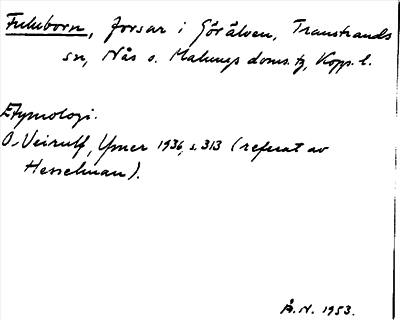 Fuluborn, forsar i Görälven, Transtrands
sn, Nås o. Malungs doms. tg, Kopp. l.
Etymologi:
O. Veirulf, Ymer 1936, s. 313 (referat av
Hesselman).
Å. N. 1953.